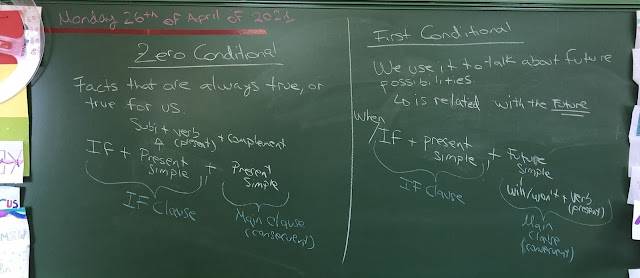 Monday 26th of April of 2021
Zero Conditional
Facts that are always true, or
true for us.
Subj + verb + complement
(present)
If + Present + Present
Simple Simple
IF Clause
Main Clause
(consequent)
First Conditional
We use it to talk about future
possibilities
is related with the Future
When
If + present + Future
simple Simple
IF Clause
will/won't + verb
(present)
Main
Clause
(consequent)
CUS